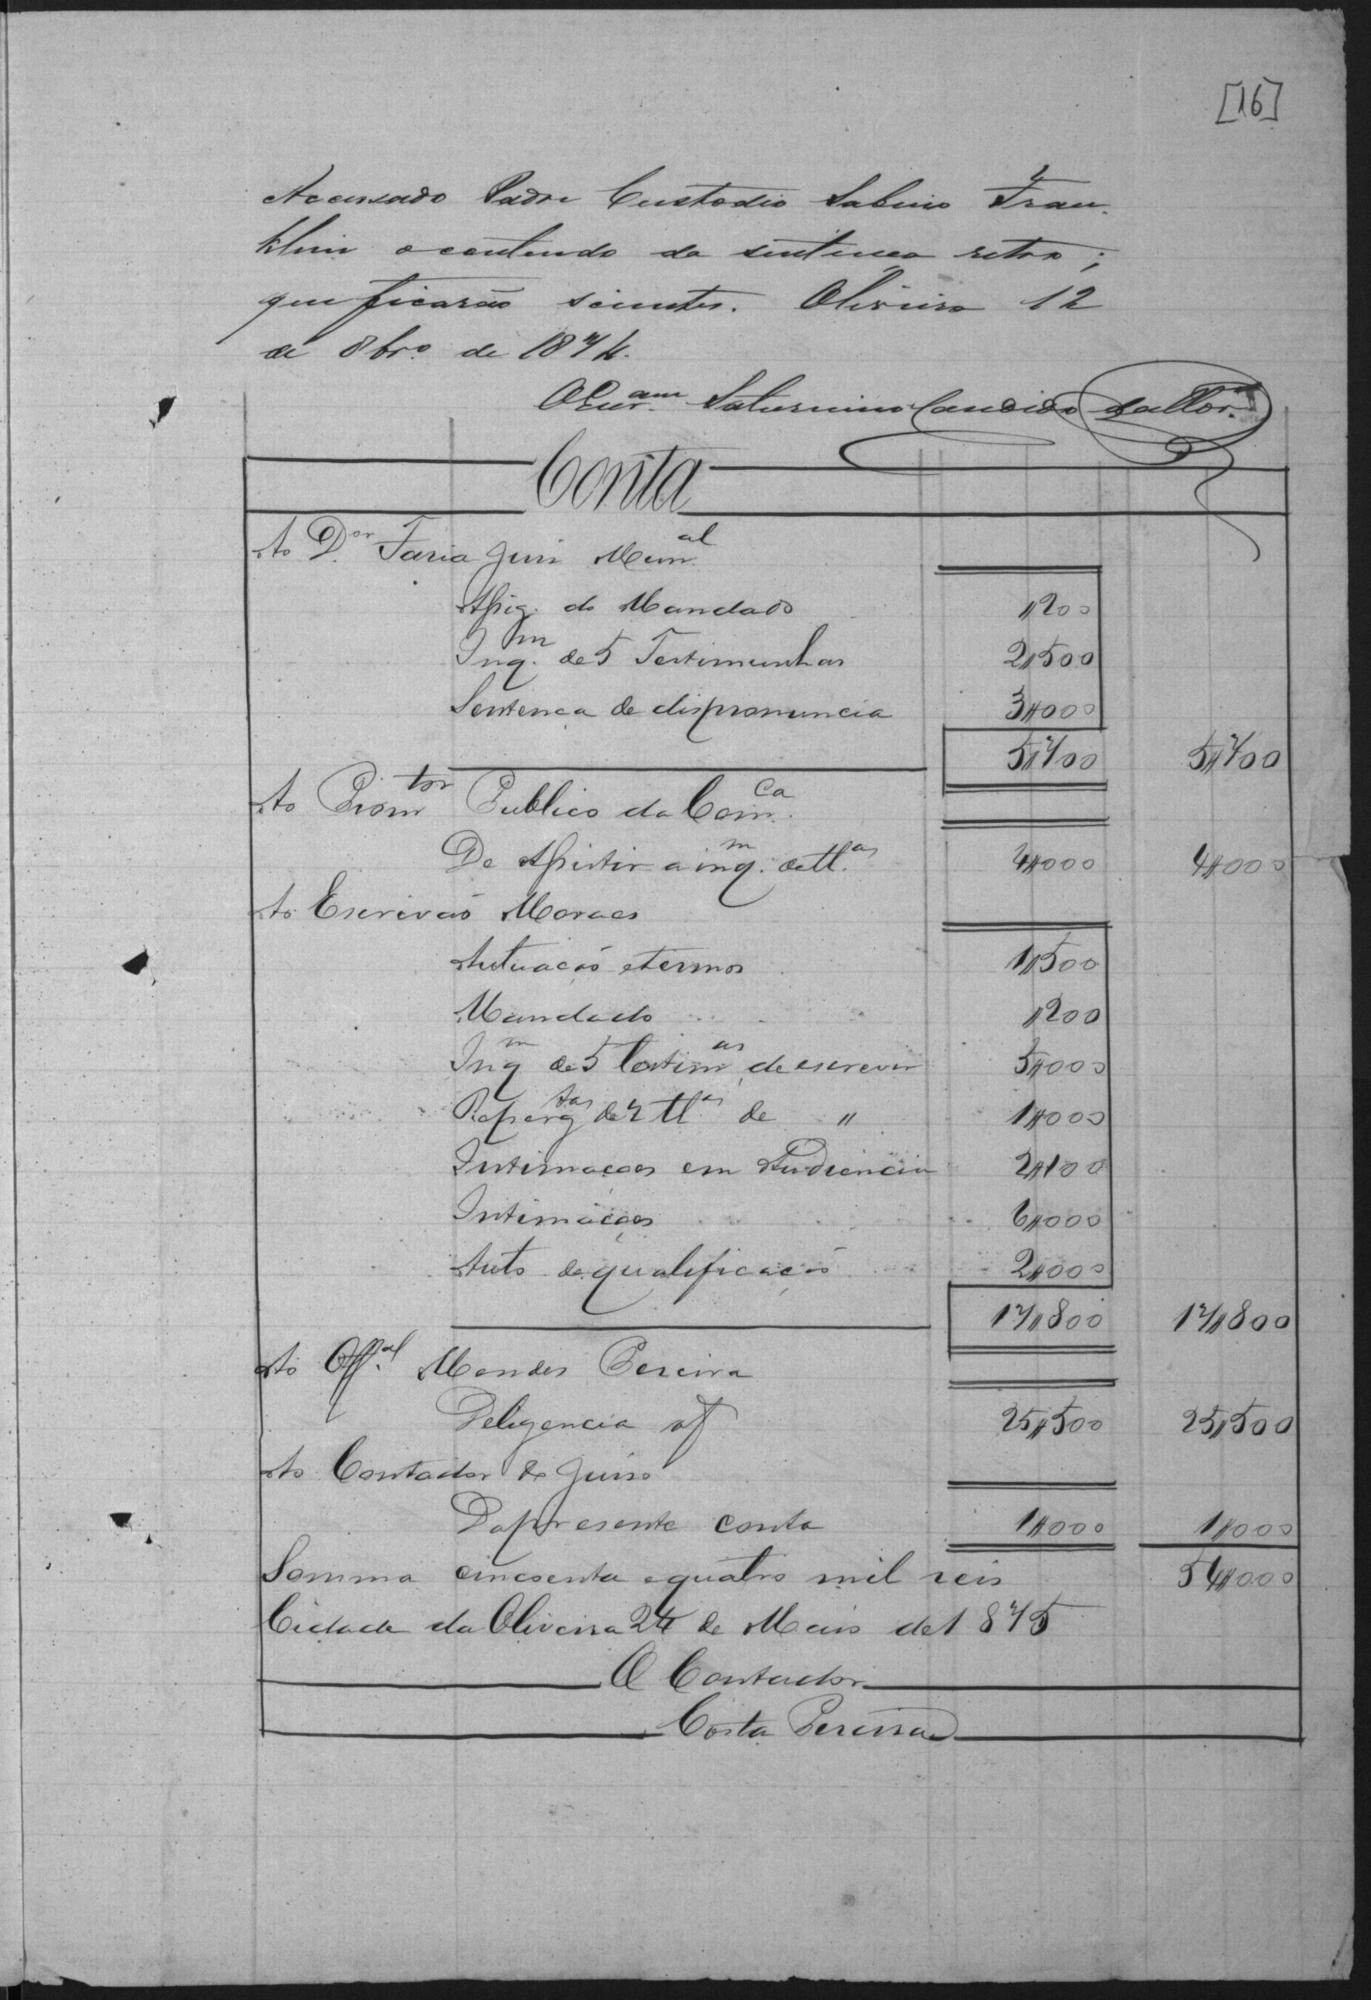 [16]
Accusado Padre Custodio Sabino Fran-
klim o contendo da sentença retro;
que ficarão scientes. Oliveira 12
de 8brº de 1874.
Saturnino Candido
Conta
Ao Dor Faria Juis Munal
Assig. do Mandado 200
Inqm de 5 Testimunhas 2500
Sentenca de dispronuncia 3000
5700 5700
Ao Promtor Publico da Comca
De Assistir a inqm de ttas 4000 4000
Ao Escrivaõ Moraes
Autuaçaõ e termos 1500
Mandado 200
Inqm de 5 testimas de escrever 5000
Repergtas de 2 ttas de " 1000
Intimaçoes em Audiencia 2100
Intimaçoes 6000
Auto de qualificaçaõ 2000
17800 17800
Ao Offal Mendes Pereira
Deligencia 25500 25500
Ao Contador do Juiso
Da presente conta 1000 1000
Somma cincoenta e quatro mil reis 54000
Cidade da Oliveira 24 de Maio de 1875
O Contador
Costa Pereira